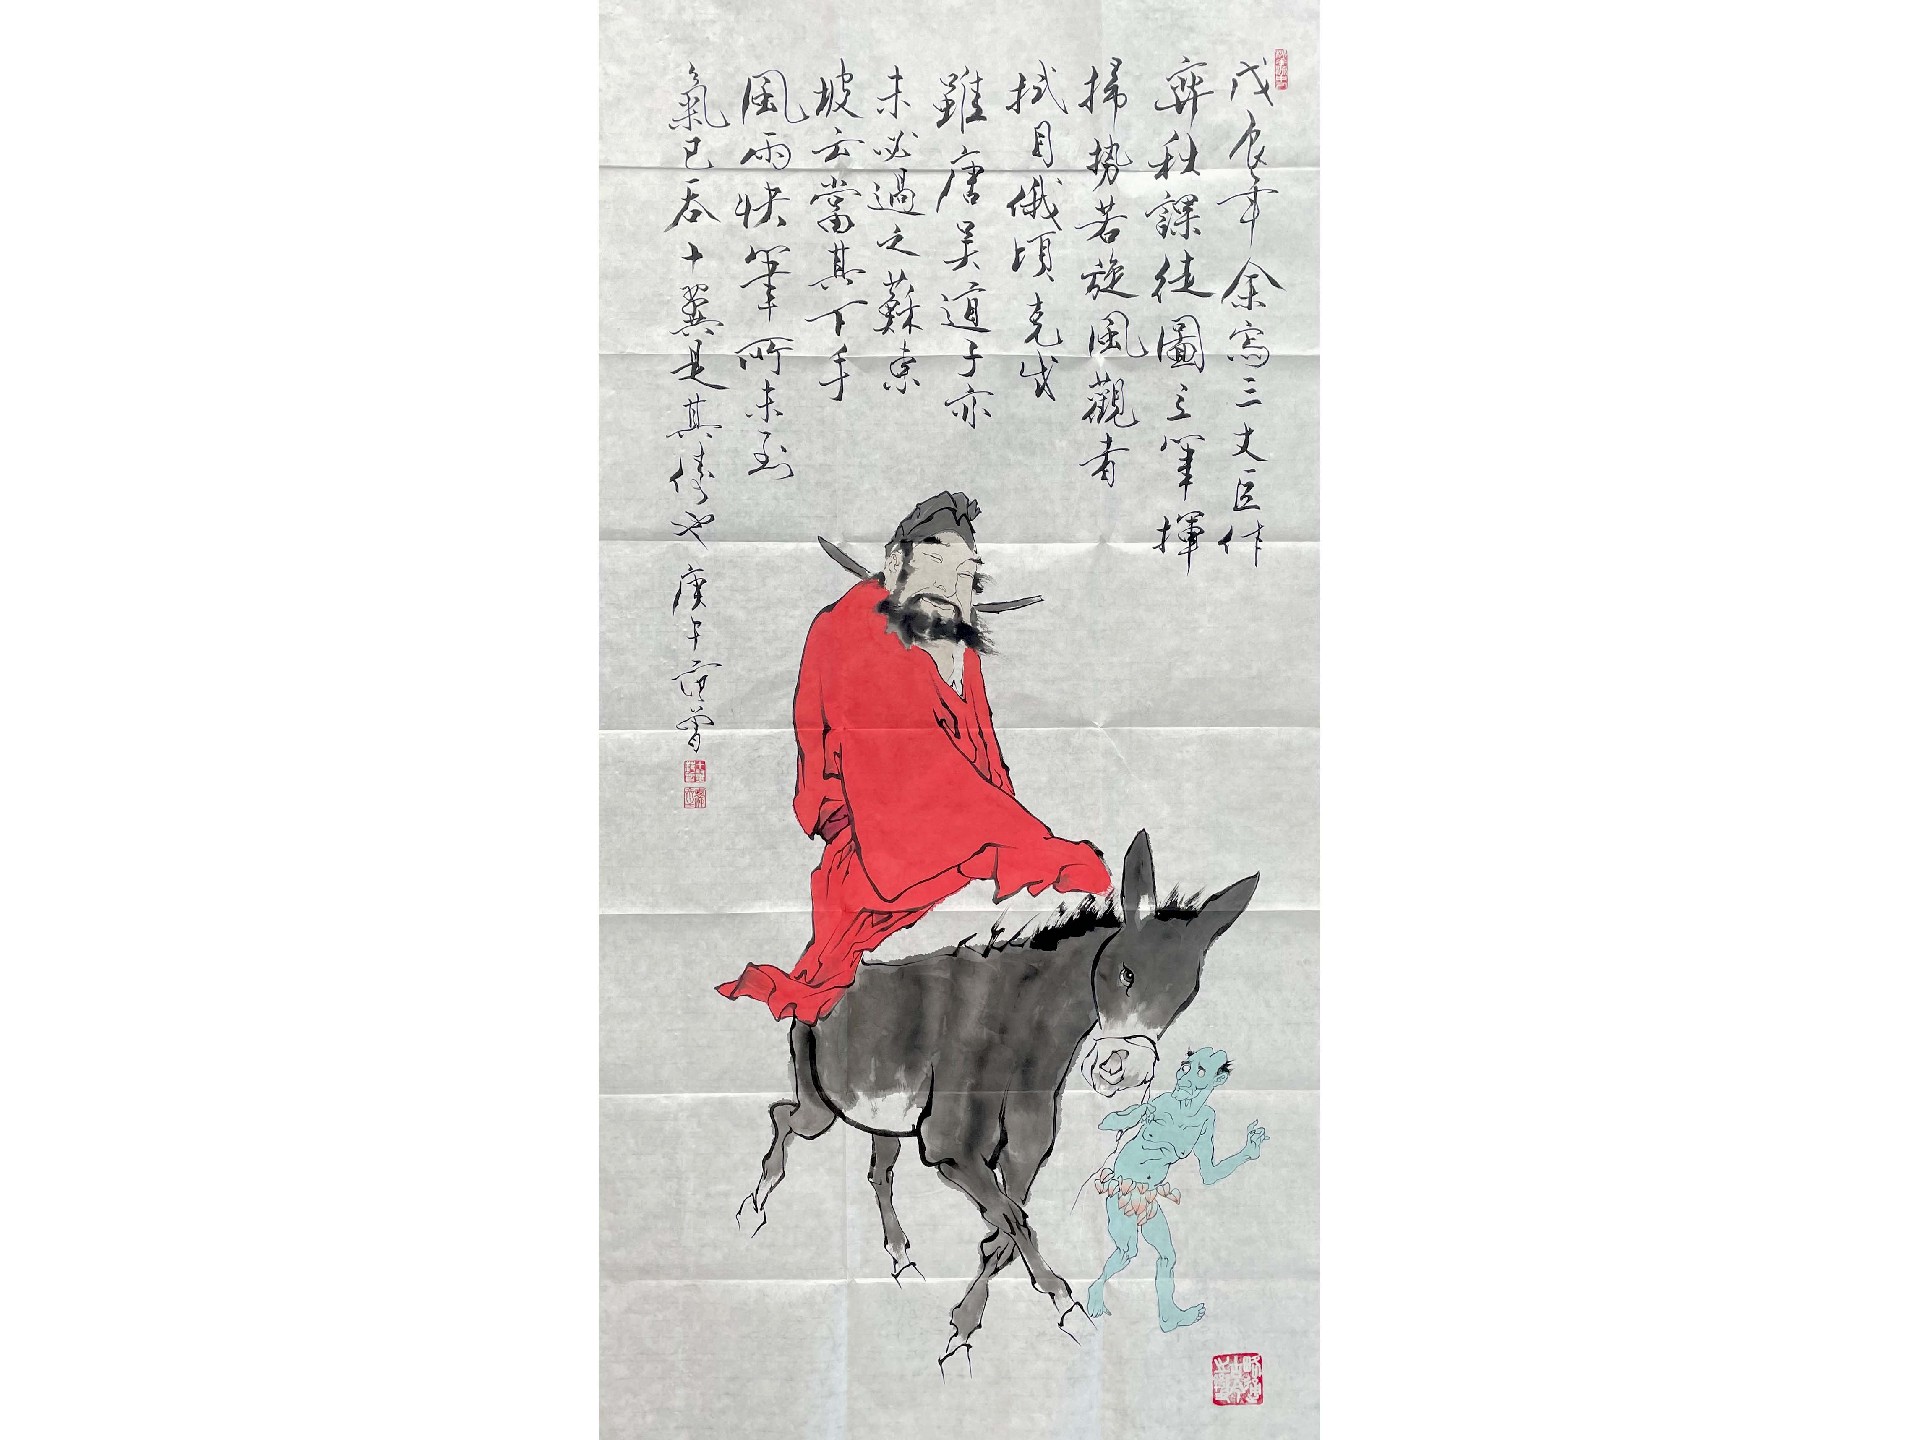 戊辰年余寫三丈巨作
弈秋課徒圖之筆揮
掃勢若旋風觀者
拭目俄頃克成
雖唐吴道子亦
未必過之蘇東
坡云當其下手
風雨快筆所未到
氣已吞十翼是其儔也庚午范曾